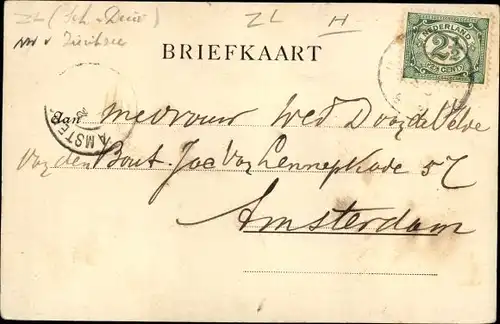 ZL (Sch. v. Duiv)
ZL H
v Zierikzee
BRIEFKAART
NEDERLAND
2½
CENT
AMSTE
Aan mevrouw Wed Doorn de Velde
van den Bout. Jac Van Lennepkade 57
Amsterdam